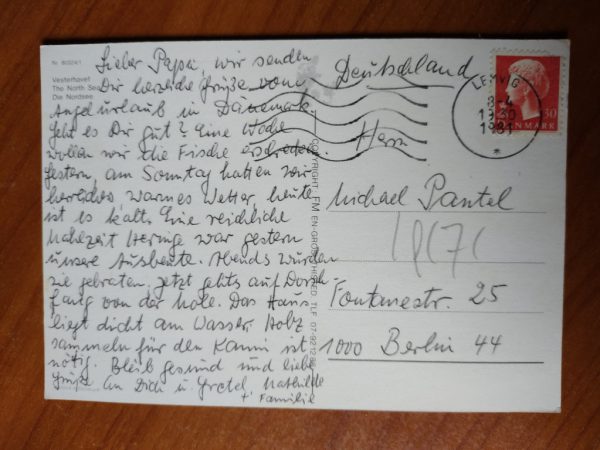 Nr. 80024/1
Vesterhavet
The North Sea
Die Nordsee
Lieber Papa, wir senden
Dir herzliche Grüße vom
Angelurlaub in Dänemark
Geht es Dir gut? Eine Woche
wollen wir die Fische erschrecken.
Gestern, am Sonntag hatten wir
herrliches, warmes Wetter, heute
ist es kalt. Eine reichliche
Mahlzeit Heringe war gestern
unsere Ausbeute. Abends wurden
sie gebraten. Jetzt gehts auf Dorsch-
fang von der Mole. Das Haus
liegt dicht am Wasser. Holz
sammeln für den Kamin ist
nötig. Bleib gesund und liebe
Grüße an Dich u. Gretel, Mathilde
+ Familie
COPYRIGHT: FM EN-GROS THISTED TLF. 07-92
Deutschland
Herrn
Michael Pantel
Fontanestr. 25
1000 Berlin 44
LEMVIG
8-4
1930
1981
30
DANMARK